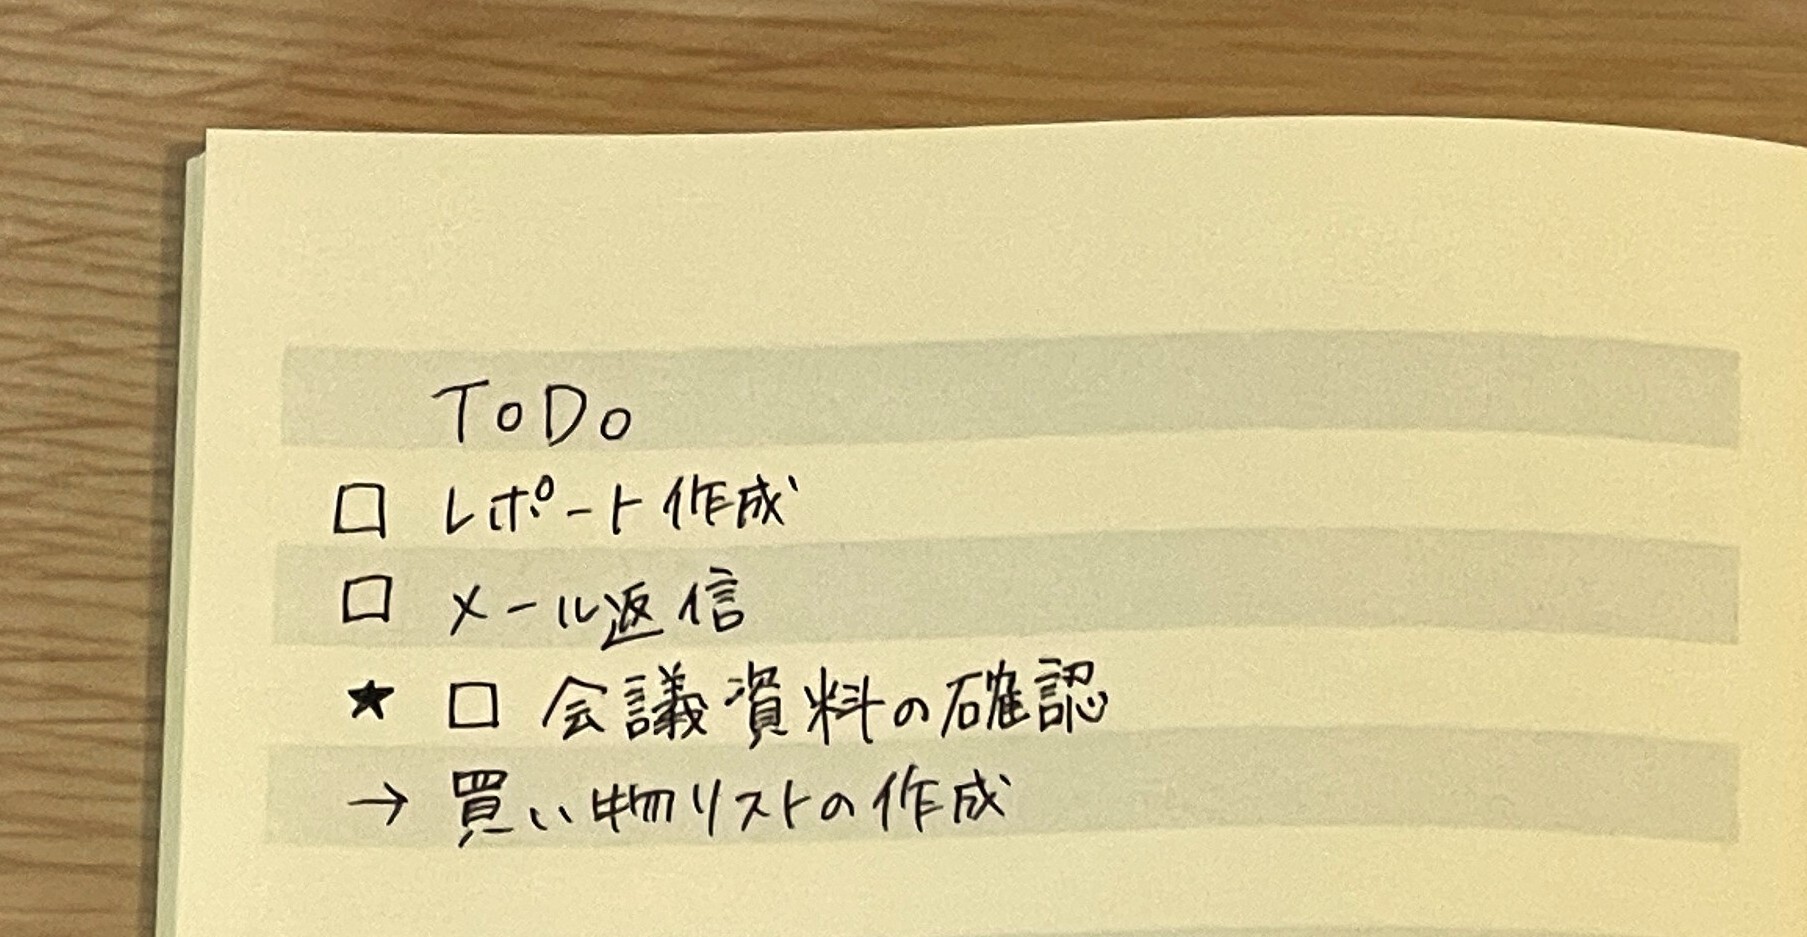 ToDo
□ レポート作成
□ メール返信
★ □ 会議資料の確認
→ 買い物リストの作成